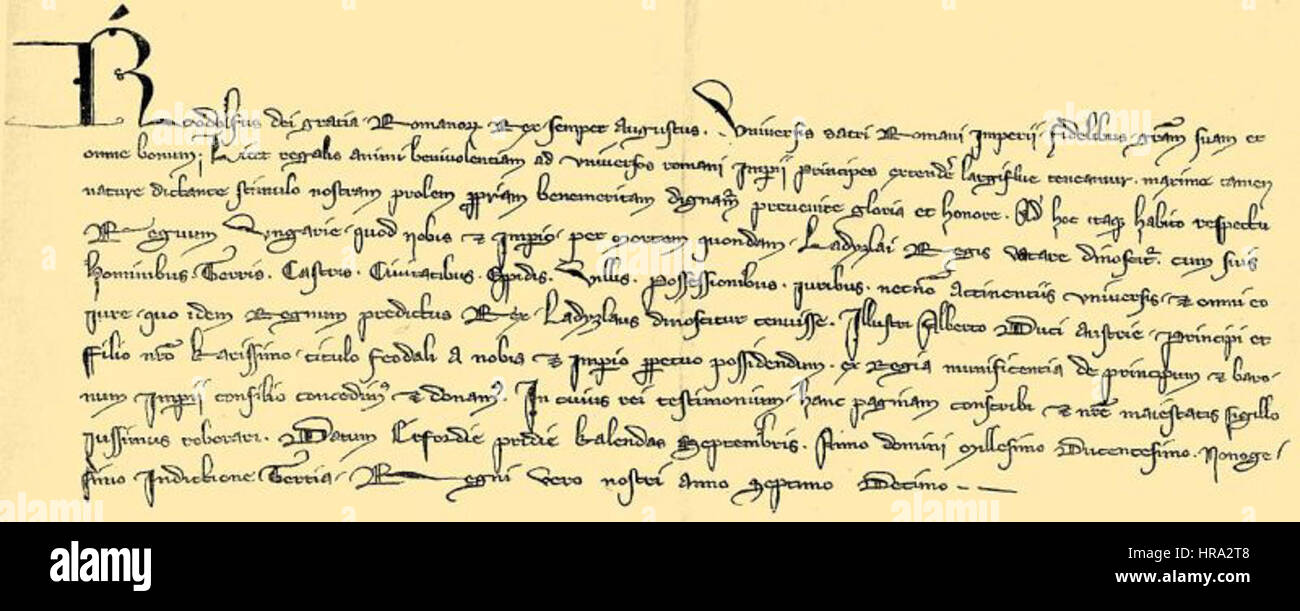 Rvdolfus dei gratia Romanoꝝ Rex semper Augustus. Vniversis sacri Romani Imperii fidelibus gr̄am suam et
omne bonum. Licet regalis animi benivolentiam ad vniversos romani Imp̄ii principes extendẽ largiflue teneamur. maxime tamen
nature dictante stimulo nostram prolem ꝓpriam benemeritam dignam̄ prevenire gloria et honore. Ad hoc itaqꝫ habito respectu
Regnum Vngarie quod nobis et Imp̄io per mortem quondam Ladyzlai Regis vacare dinoscitr̄. cum suis
hominibus. Terris. Castris. Civitatibus. Opidis. Villis. possessionibus. iuribus. necnõ Attinentiis vniversis et omni eo
iure quo idem Regnum predictus Rex Ladyzlaus dinoscitur tenuisse. Illustri Alberto Duci Austrie Principi et
Filio nr̄o karissimo titulo feodali A nobis et Imp̄io ꝑpetuo possidendum. ex Regia munificentia de principum et baro-
num Imp̄ii consilio concedim⁹ et donam⁹. In cuius rei testimonium hanc paginam conscribi et nr̄e maiestatis sigillo
iussimus roborari. Datum Erfordie pridie kalendas Septembris. Anno domini Millesimo Ducentesimo. Nonoge-
simo Indictione Tertia. Regni vero nostri anno Septimo Decimo
alamy
HRA2T8
www.alamy.com